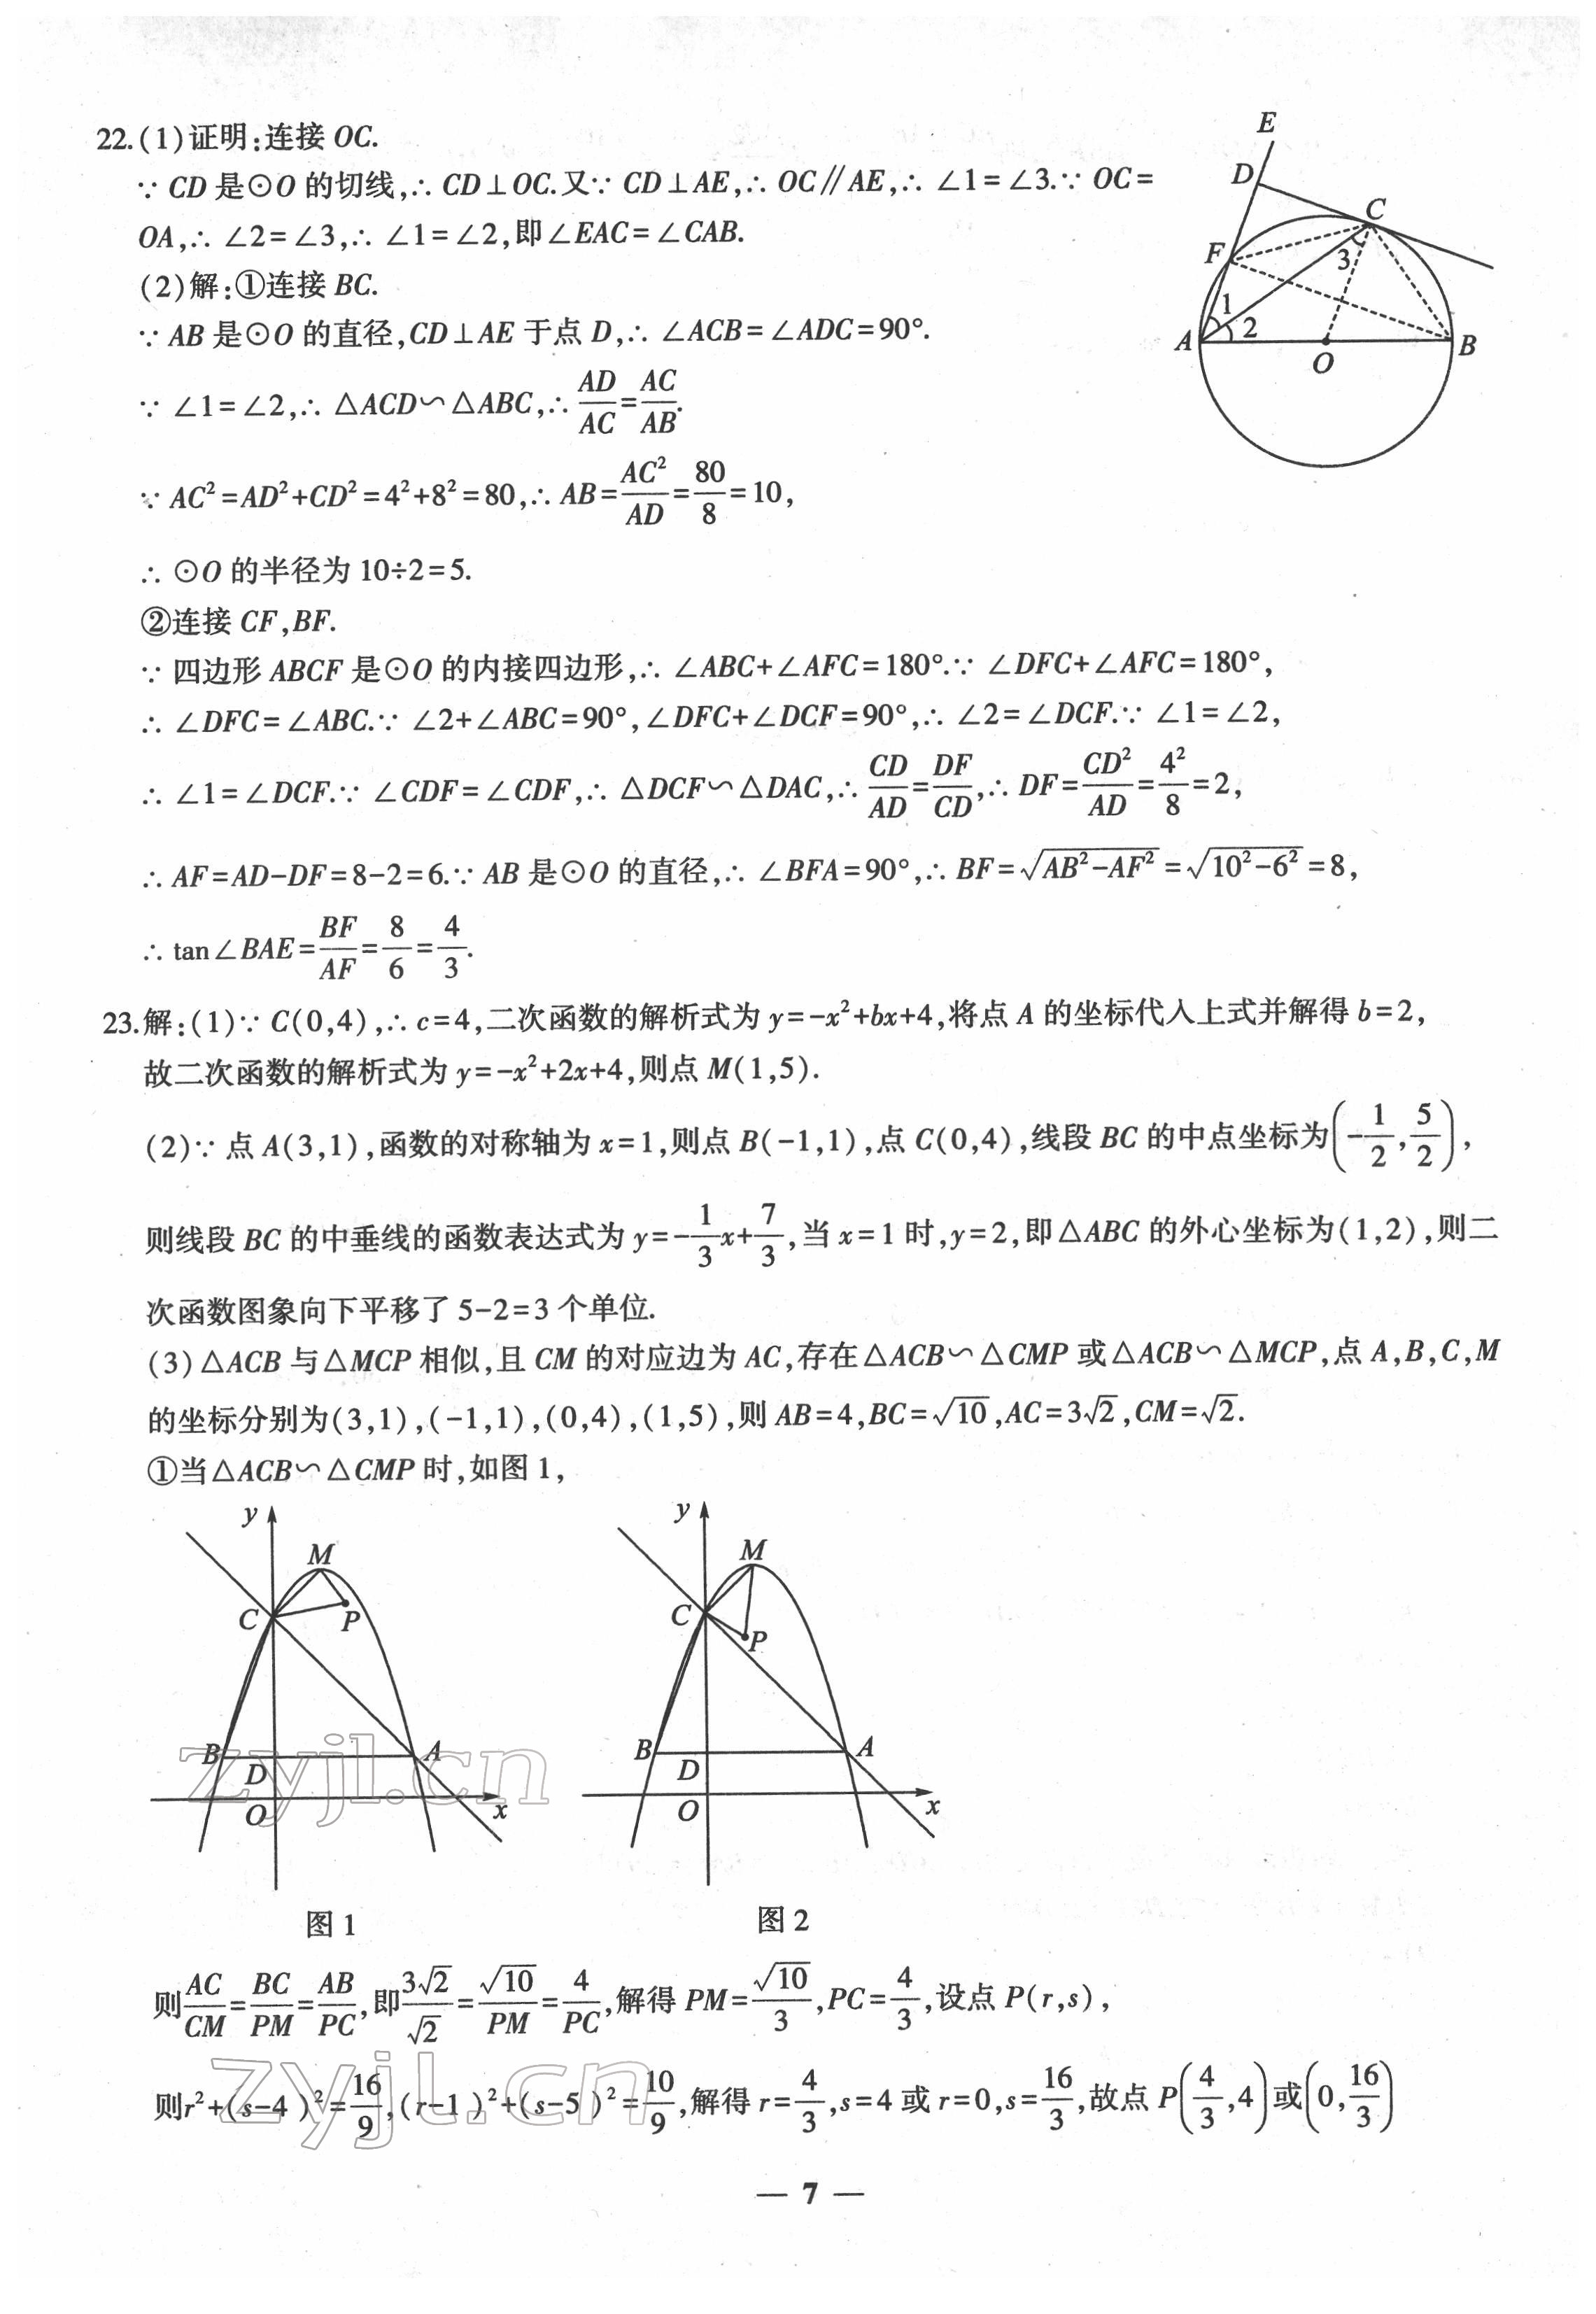 22.(1)证明:连接 OC.
∵ CD 是⊙O 的切线,∴ CD⊥OC.又∵ CD⊥AE,∴ OC∥AE,∴ ∠1=∠3.∵ OC=
OA,∴ ∠2=∠3,∴ ∠1=∠2,即∠EAC=∠CAB.
(2)解:①连接 BC.
∵ AB 是⊙O 的直径,CD⊥AE 于点 D,∴ ∠ACB=∠ADC=90°.
∵ ∠1=∠2,∴ △ACD∽△ABC,∴ AD/AC=AC/AB.
∵ AC²=AD²+CD²=4²+8²=80,∴ AB=AC²/AD=80/8=10,
∴ ⊙O 的半径为 10÷2=5.
②连接 CF,BF.
∵ 四边形 ABCF 是⊙O 的内接四边形,∴ ∠ABC+∠AFC=180°.∵ ∠DFC+∠AFC=180°,
∴ ∠DFC=∠ABC.∵ ∠2+∠ABC=90°,∠DFC+∠DCF=90°,∴ ∠2=∠DCF.∵ ∠1=∠2,
∴ ∠1=∠DCF.∵ ∠CDF=∠CDF,∴ △DCF∽△DAC,∴ CD/AD=DF/CD,∴ DF=CD²/AD=4²/8=2,
∴ AF=AD-DF=8-2=6.∵ AB 是⊙O 的直径,∴ ∠BFA=90°,∴ BF=√(AB²-AF²)=√(10²-6²)=8,
∴ tan∠BAE=BF/AF=8/6=4/3.
E
D
C
F
3
1
2
A
O
B
23.解:(1)∵ C(0,4),∴ c=4,二次函数的解析式为 y=-x²+bx+4,将点 A 的坐标代入上式并解得 b=2,
故二次函数的解析式为 y=-x²+2x+4,则点 M(1,5).
(2)∵ 点 A(3,1),函数的对称轴为 x=1,则点 B(-1,1),点 C(0,4),线段 BC 的中点坐标为(-1/2,5/2),
则线段 BC 的中垂线的函数表达式为 y=-1/3x+7/3,当 x=1 时,y=2,即△ABC 的外心坐标为(1,2),则二
次函数图象向下平移了 5-2=3 个单位.
(3)△ACB 与△MCP 相似,且 CM 的对应边为 AC,存在△ACB∽△CMP 或△ACB∽△MCP,点 A,B,C,M
的坐标分别为(3,1),(-1,1),(0,4),(1,5),则 AB=4,BC=√10,AC=3√2,CM=√2.
①当△ACB∽△CMP 时,如图 1,
y
M
C
P
B
A
D
O
x
图 1
y
M
C
P
B
A
D
O
x
图 2
zyjl.cn
则AC/CM=BC/PM=AB/PC,即3√2/√2=√10/PM=4/PC,解得 PM=√10/3,PC=4/3,设点 P(r,s),
则r²+(s-4)²=16/9,(r-1)²+(s-5)²=10/9,解得 r=4/3,s=4 或 r=0,s=16/3,故点 P(4/3,4)或(0,16/3)
zyjl.cn
— 7 —